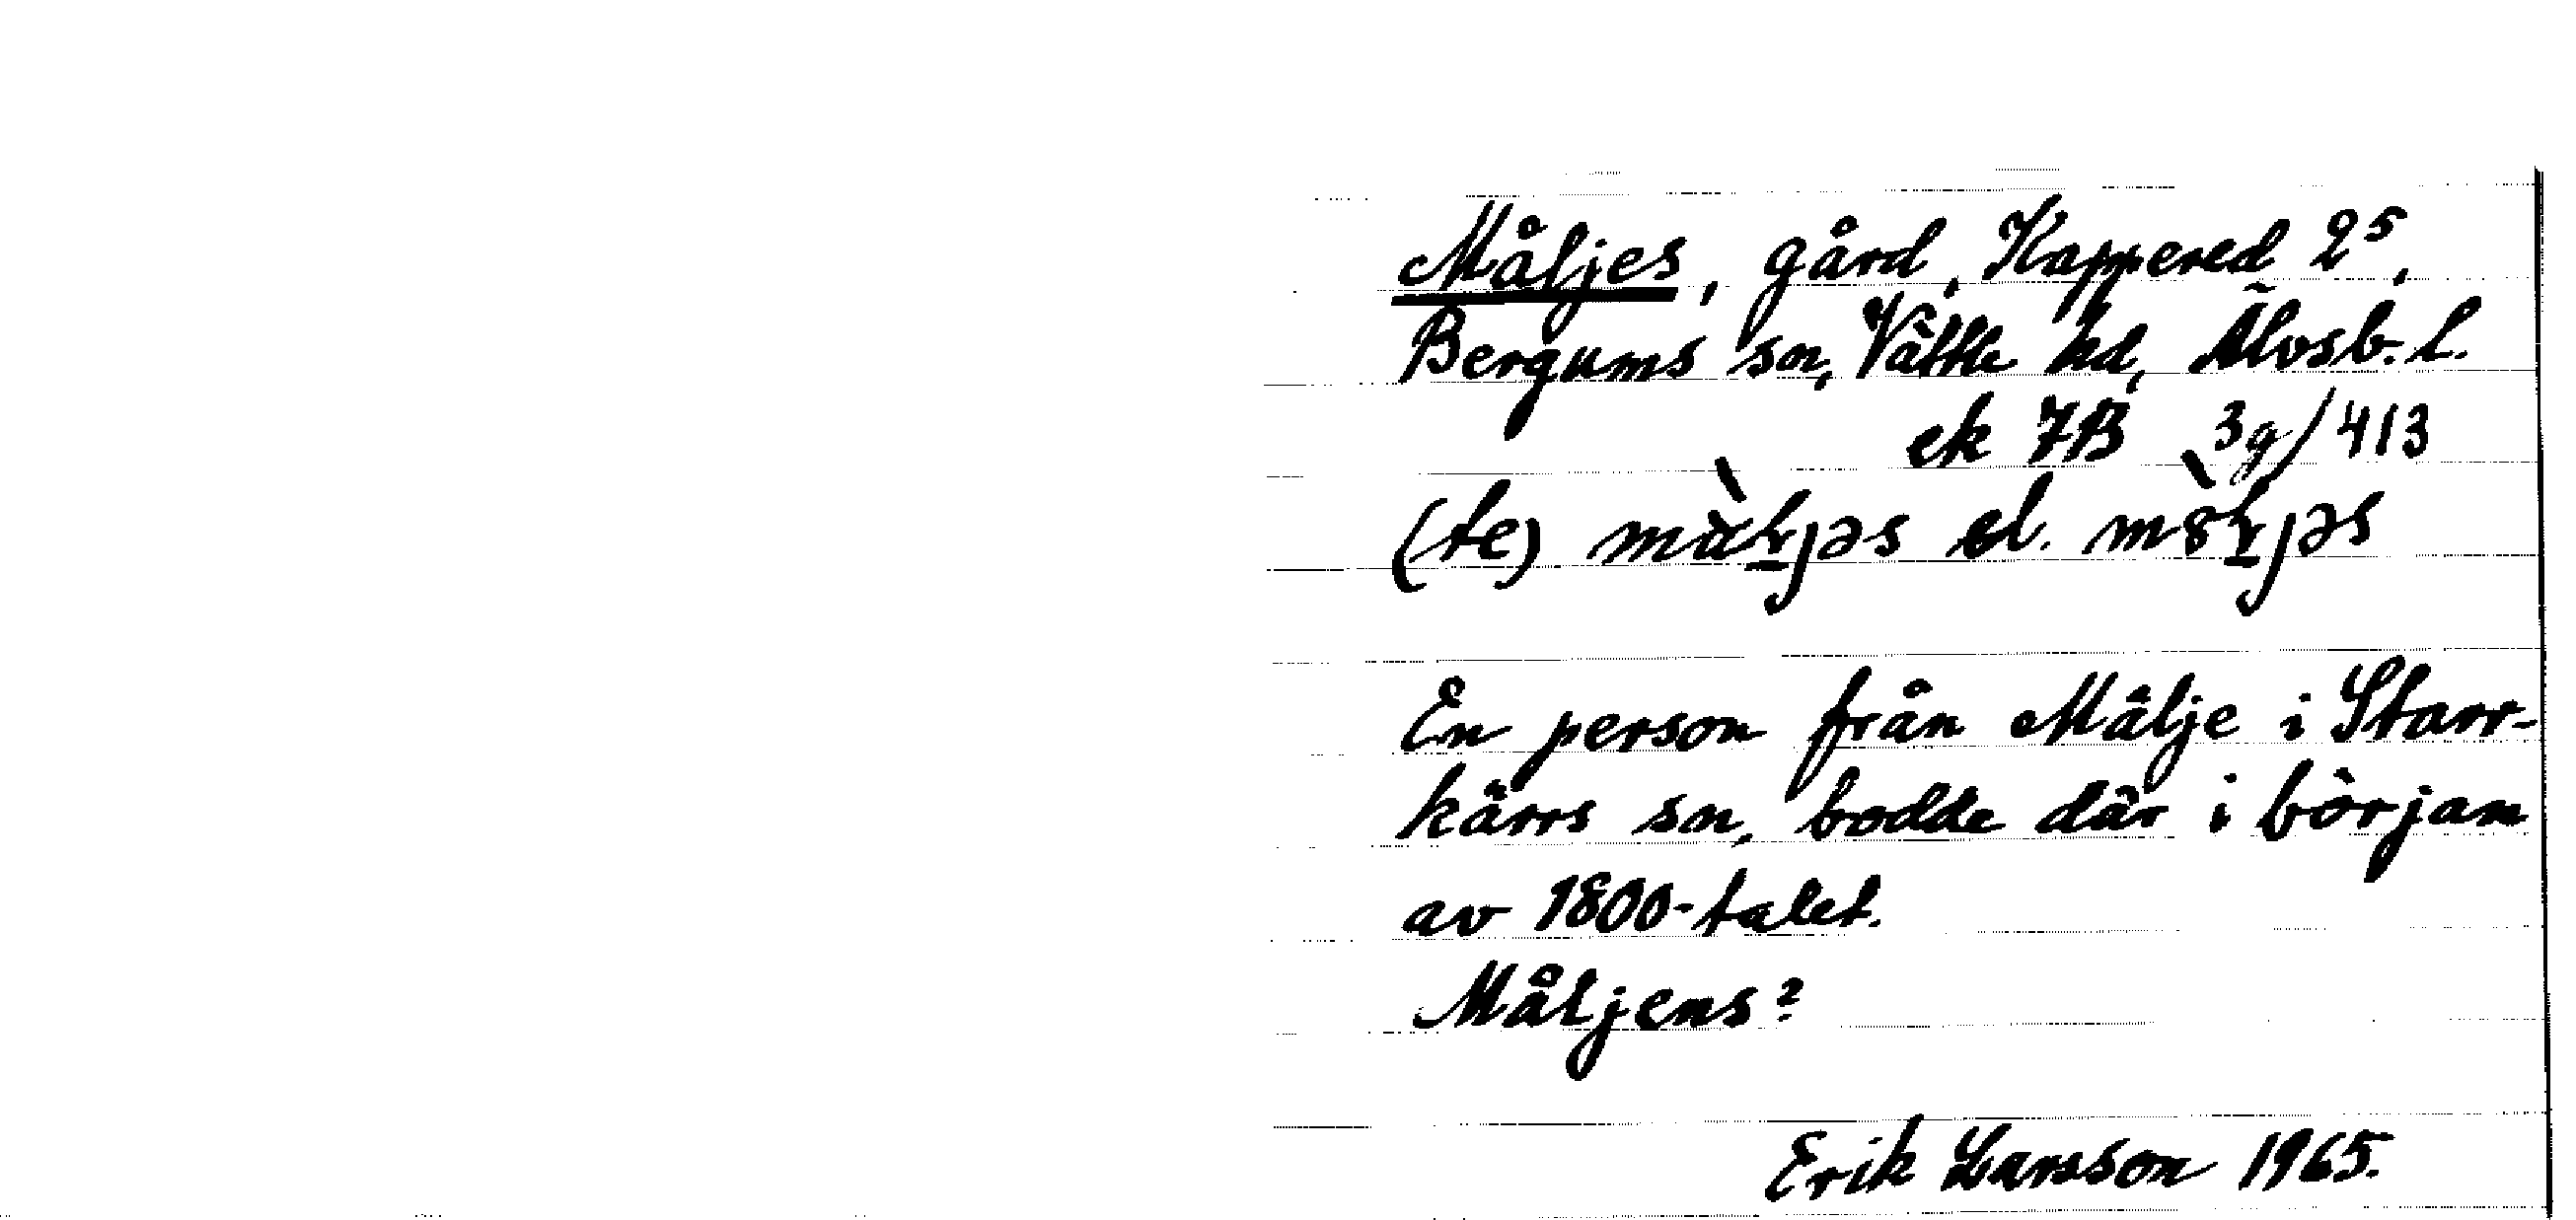 Måljes, gård, Kappered 2⁵,
Bergums sn, Vättle hd, Älvsb. l.
ek 7B 3g/413
(te) màḷjəs el. mòḷjəs
En person från Målje i Starr-
kärrs sn, bodde där i början
av 1800-talet.
Måljens?
Erik Larsson 1965.